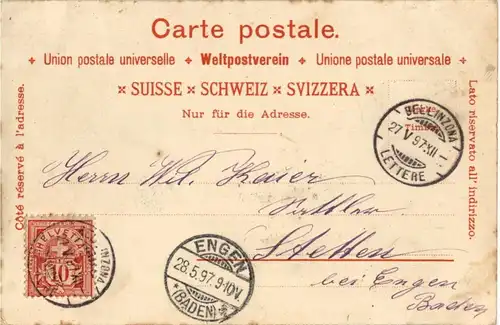 Carte postale.
+ Union postale universelle + Weltpostverein + Unione postale universale +
× SUISSE × SCHWEIZ × SVIZZERA ×
Nur für die Adresse.
Côté réservé à l'adresse.
Lato riservato all' indirizzo.
Timbre
BELLINZONA
27 V 97 XII
LETTERE
Herrn Wil. Kaiser
Sattler
Stetten
bei Engen
Baden
HELVETIA
10
ENGEN
28.5.97.9-10V.
* (BADEN)